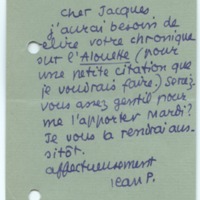 cher Jacques
j'aurai besoin de
relire votre chronique
sur l'Alouette (pour
une petite citation que
je voudrais faire.) Serez-
vous assez gentil pour
me l'apporter mardi?
Je vous la rendrai aus-
sitôt.
affectueusement
Jean P.